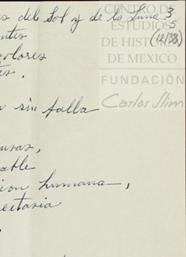 s del Sol y de la luna 3
5
(12/38)
CENTRO DE
ESTUDIOS
DE HISTORIA
DE MEXICO
FUNDACIÓN
Carlos Slim
ntes
olores
tes.
n sin falla
uras,
able
ion humana,
ectaria
,